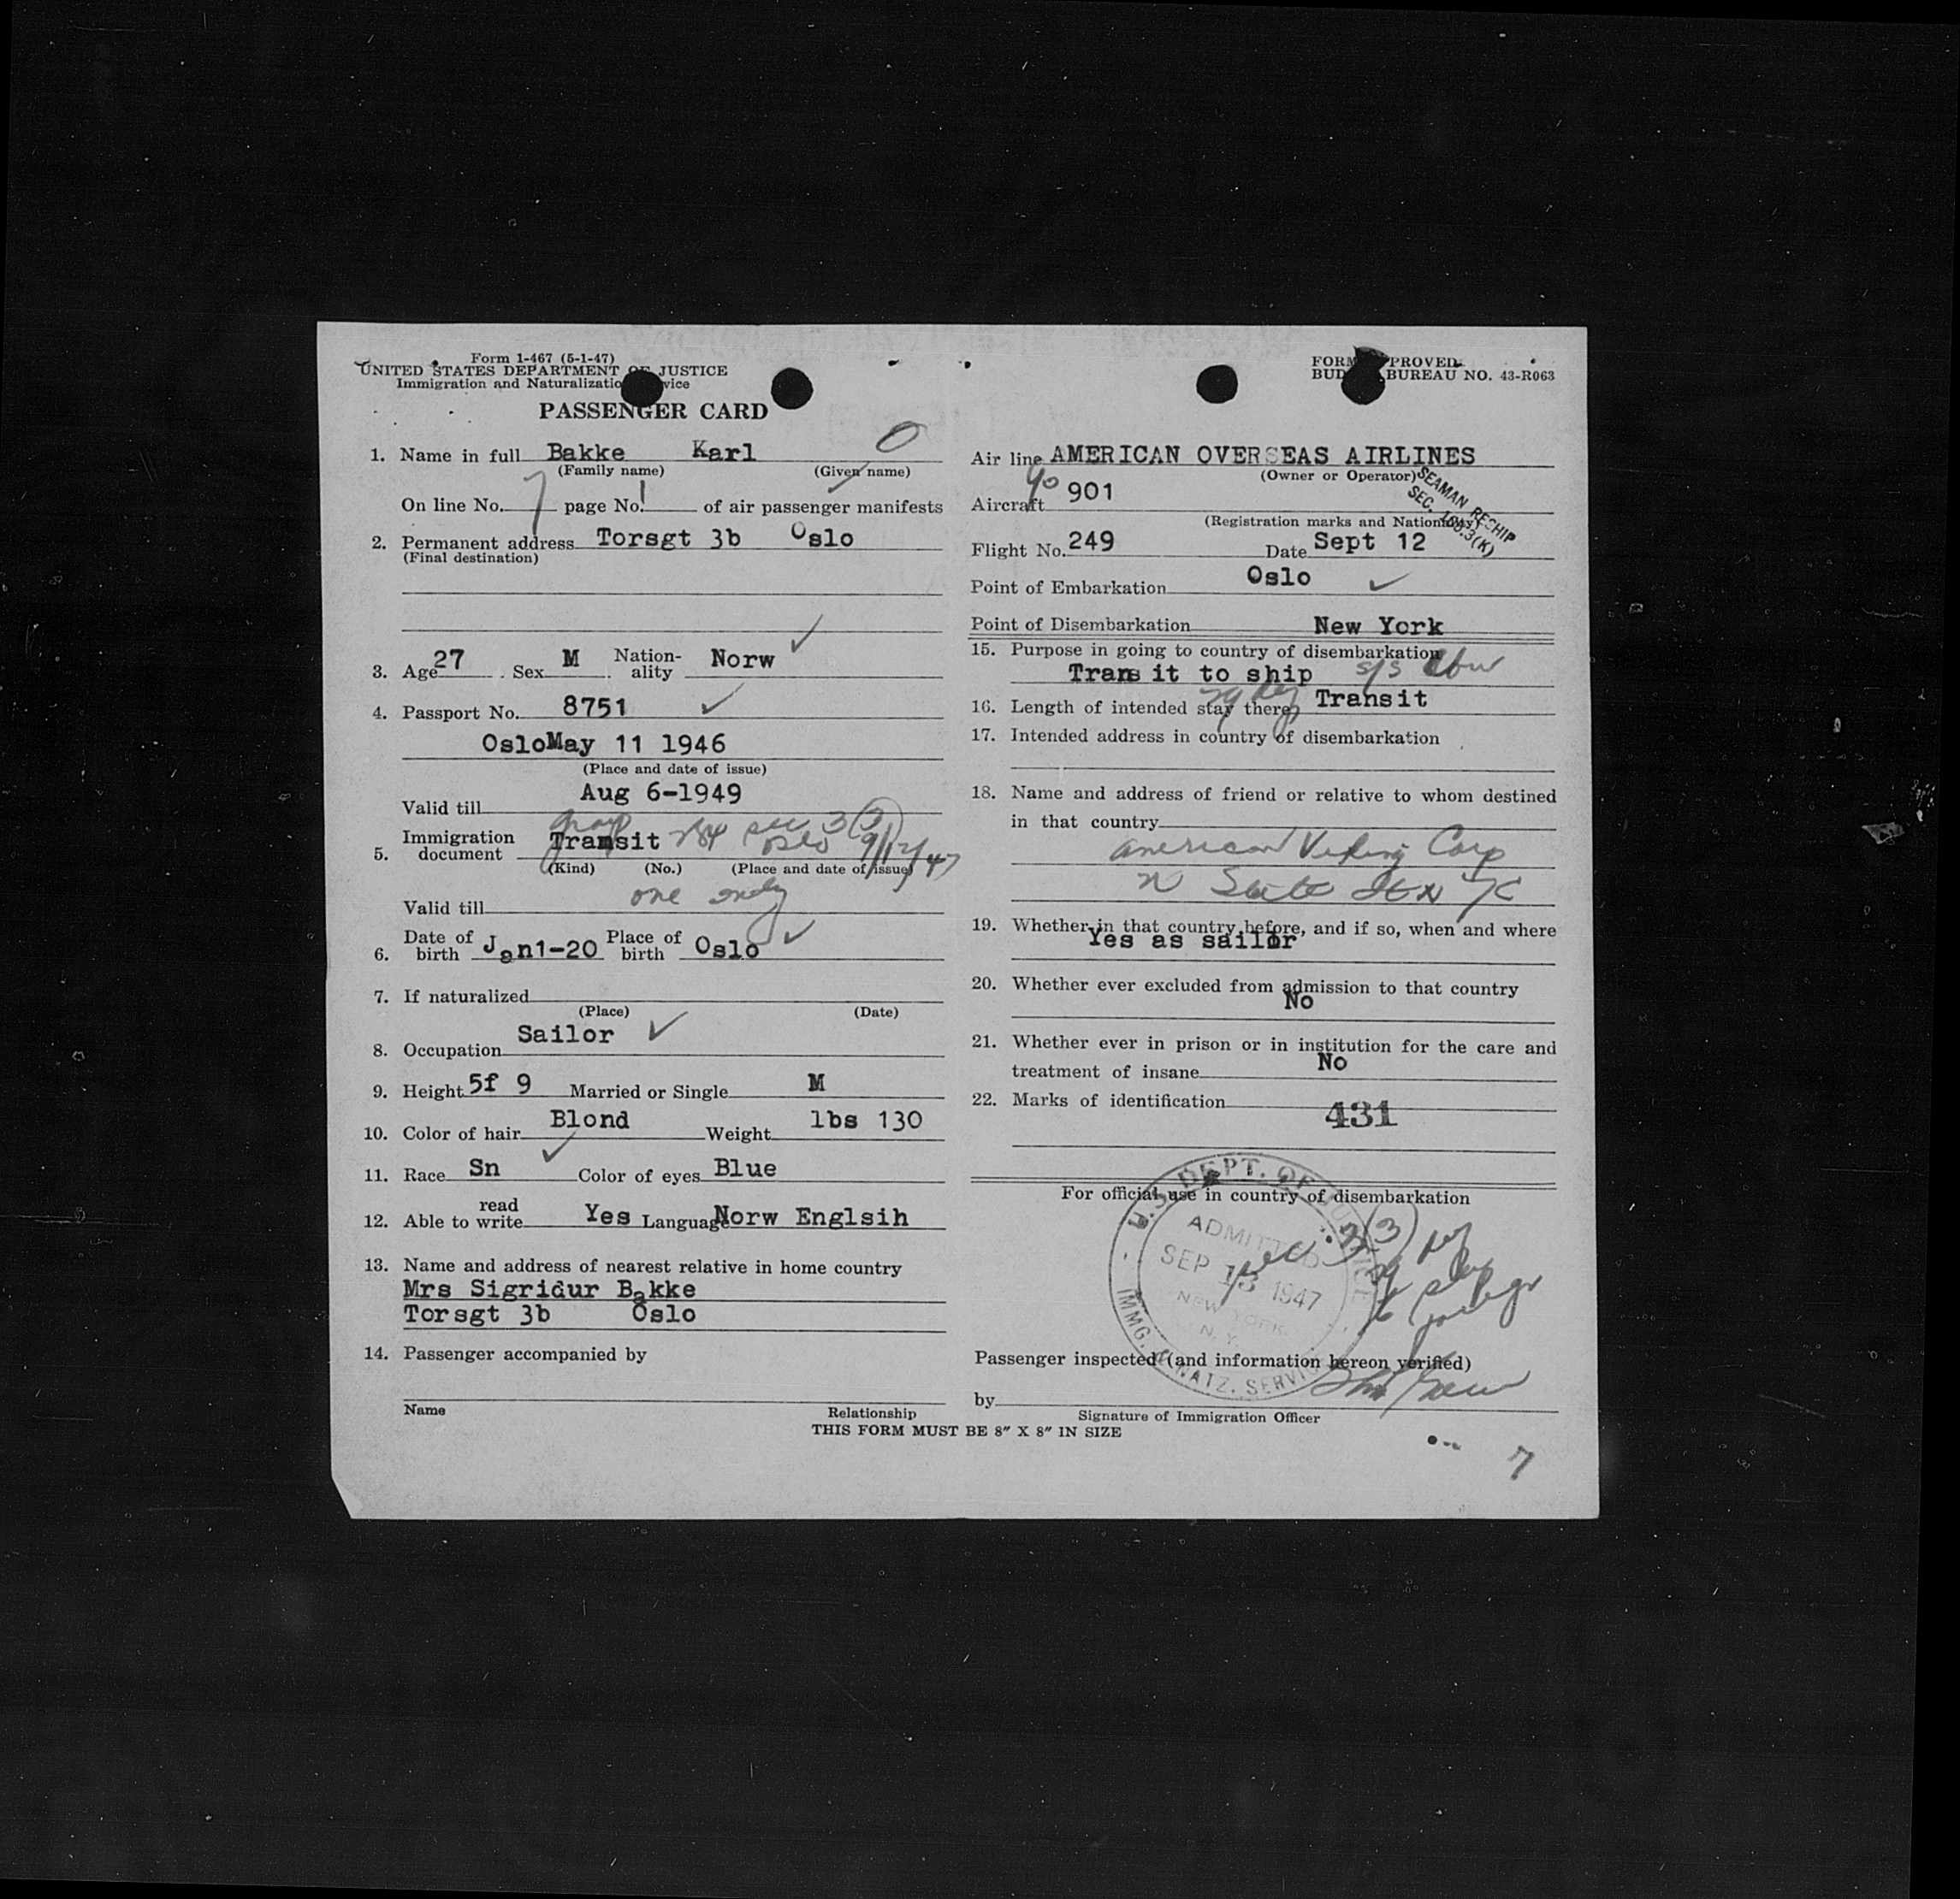 Form 1-467 (5-1-47)
UNITED STATES DEPARTMENT OF JUSTICE
Immigration and Naturalization Service
PASSENGER CARD
1. Name in full Bakke Karl O
(Family name) (Given name)
On line No. 7 page No. 1 of air passenger manifests
2. Permanent address Torsgt 3b Oslo
(Final destination)
3. Age 27 Sex M Nation-ality Norw
4. Passport No. 8751
Oslo May 11 1946
(Place and date of issue)
Valid till Aug 6-1949
5. Immigration document Transit sec 3(3) Oslo 9/12/47
(Kind) (No.) (Place and date of issue)
Valid till one only
6. Date of birth Jan1-20 Place of birth Oslo
7. If naturalized
(Place) (Date)
8. Occupation Sailor
9. Height 5f 9 Married or Single M
10. Color of hair Blond Weight lbs 130
11. Race Sn Color of eyes Blue
12. Able to read write Yes Language Norw Englsih
13. Name and address of nearest relative in home country
Mrs Sigridur Bakke
Torsgt 3b Oslo
14. Passenger accompanied by
Name Relationship
FORM APPROVED
BUDGET BUREAU NO. 43-R063
Air line AMERICAN OVERSEAS AIRLINES
(Owner or Operator)
SEAMAN RESHIP
SEC.
Aircraft 90 901
(Registration marks and Nationality)
Flight No. 249 Date Sept 12
Point of Embarkation Oslo
Point of Disembarkation New York
15. Purpose in going to country of disembarkation
Trans it to ship s/s
16. Length of intended stay there Transit
17. Intended address in country of disembarkation
18. Name and address of friend or relative to whom destined
in that country
American Viking Corp
State
19. Whether in that country before, and if so, when and where
Yes as sailor
20. Whether ever excluded from admission to that country
No
21. Whether ever in prison or in institution for the care and
treatment of insane No
22. Marks of identification 431
For official use in country of disembarkation
U.S. DEPT. OF JUSTICE
ADMITTED
SEP 13 1947
NEW YORK,
N. Y.
IMMG. & NATZ. SERVICE
sec 3(3)
Passenger inspected (and information hereon verified)
by
Signature of Immigration Officer
THIS FORM MUST BE 8" X 8" IN SIZE
7